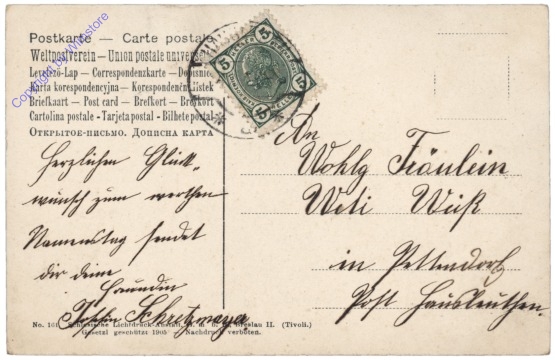 Postkarte — Carte postale
Weltpostverein — Union postale universelle
Levelező-Lap — Correspondenzkarte — Dopisnice
Karta korespondencyjna — Korespondenční lístek
Briefkaart — Post card — Brefkort — Brevkort
Cartolina postale - Tarjeta postal - Bilhete postal
Открытое-письмо. Дописна карта
Copyright by Wildstore
5
5
5
5
An
Wohlg Fräulein
Weti Weiß
in Pettendorf
Post Hausleuthen.
Herzlichen Glück-
wunsch zum werthen
Namenstag sendet
dir deine
Freundin
Schretzmayer
No. 161 Schlesische Lichtdruck-Anstalt, G. m. b. H. Breslau II. (Tivoli.)
Gesetzl geschützt 1905 — Nachdruck verboten.